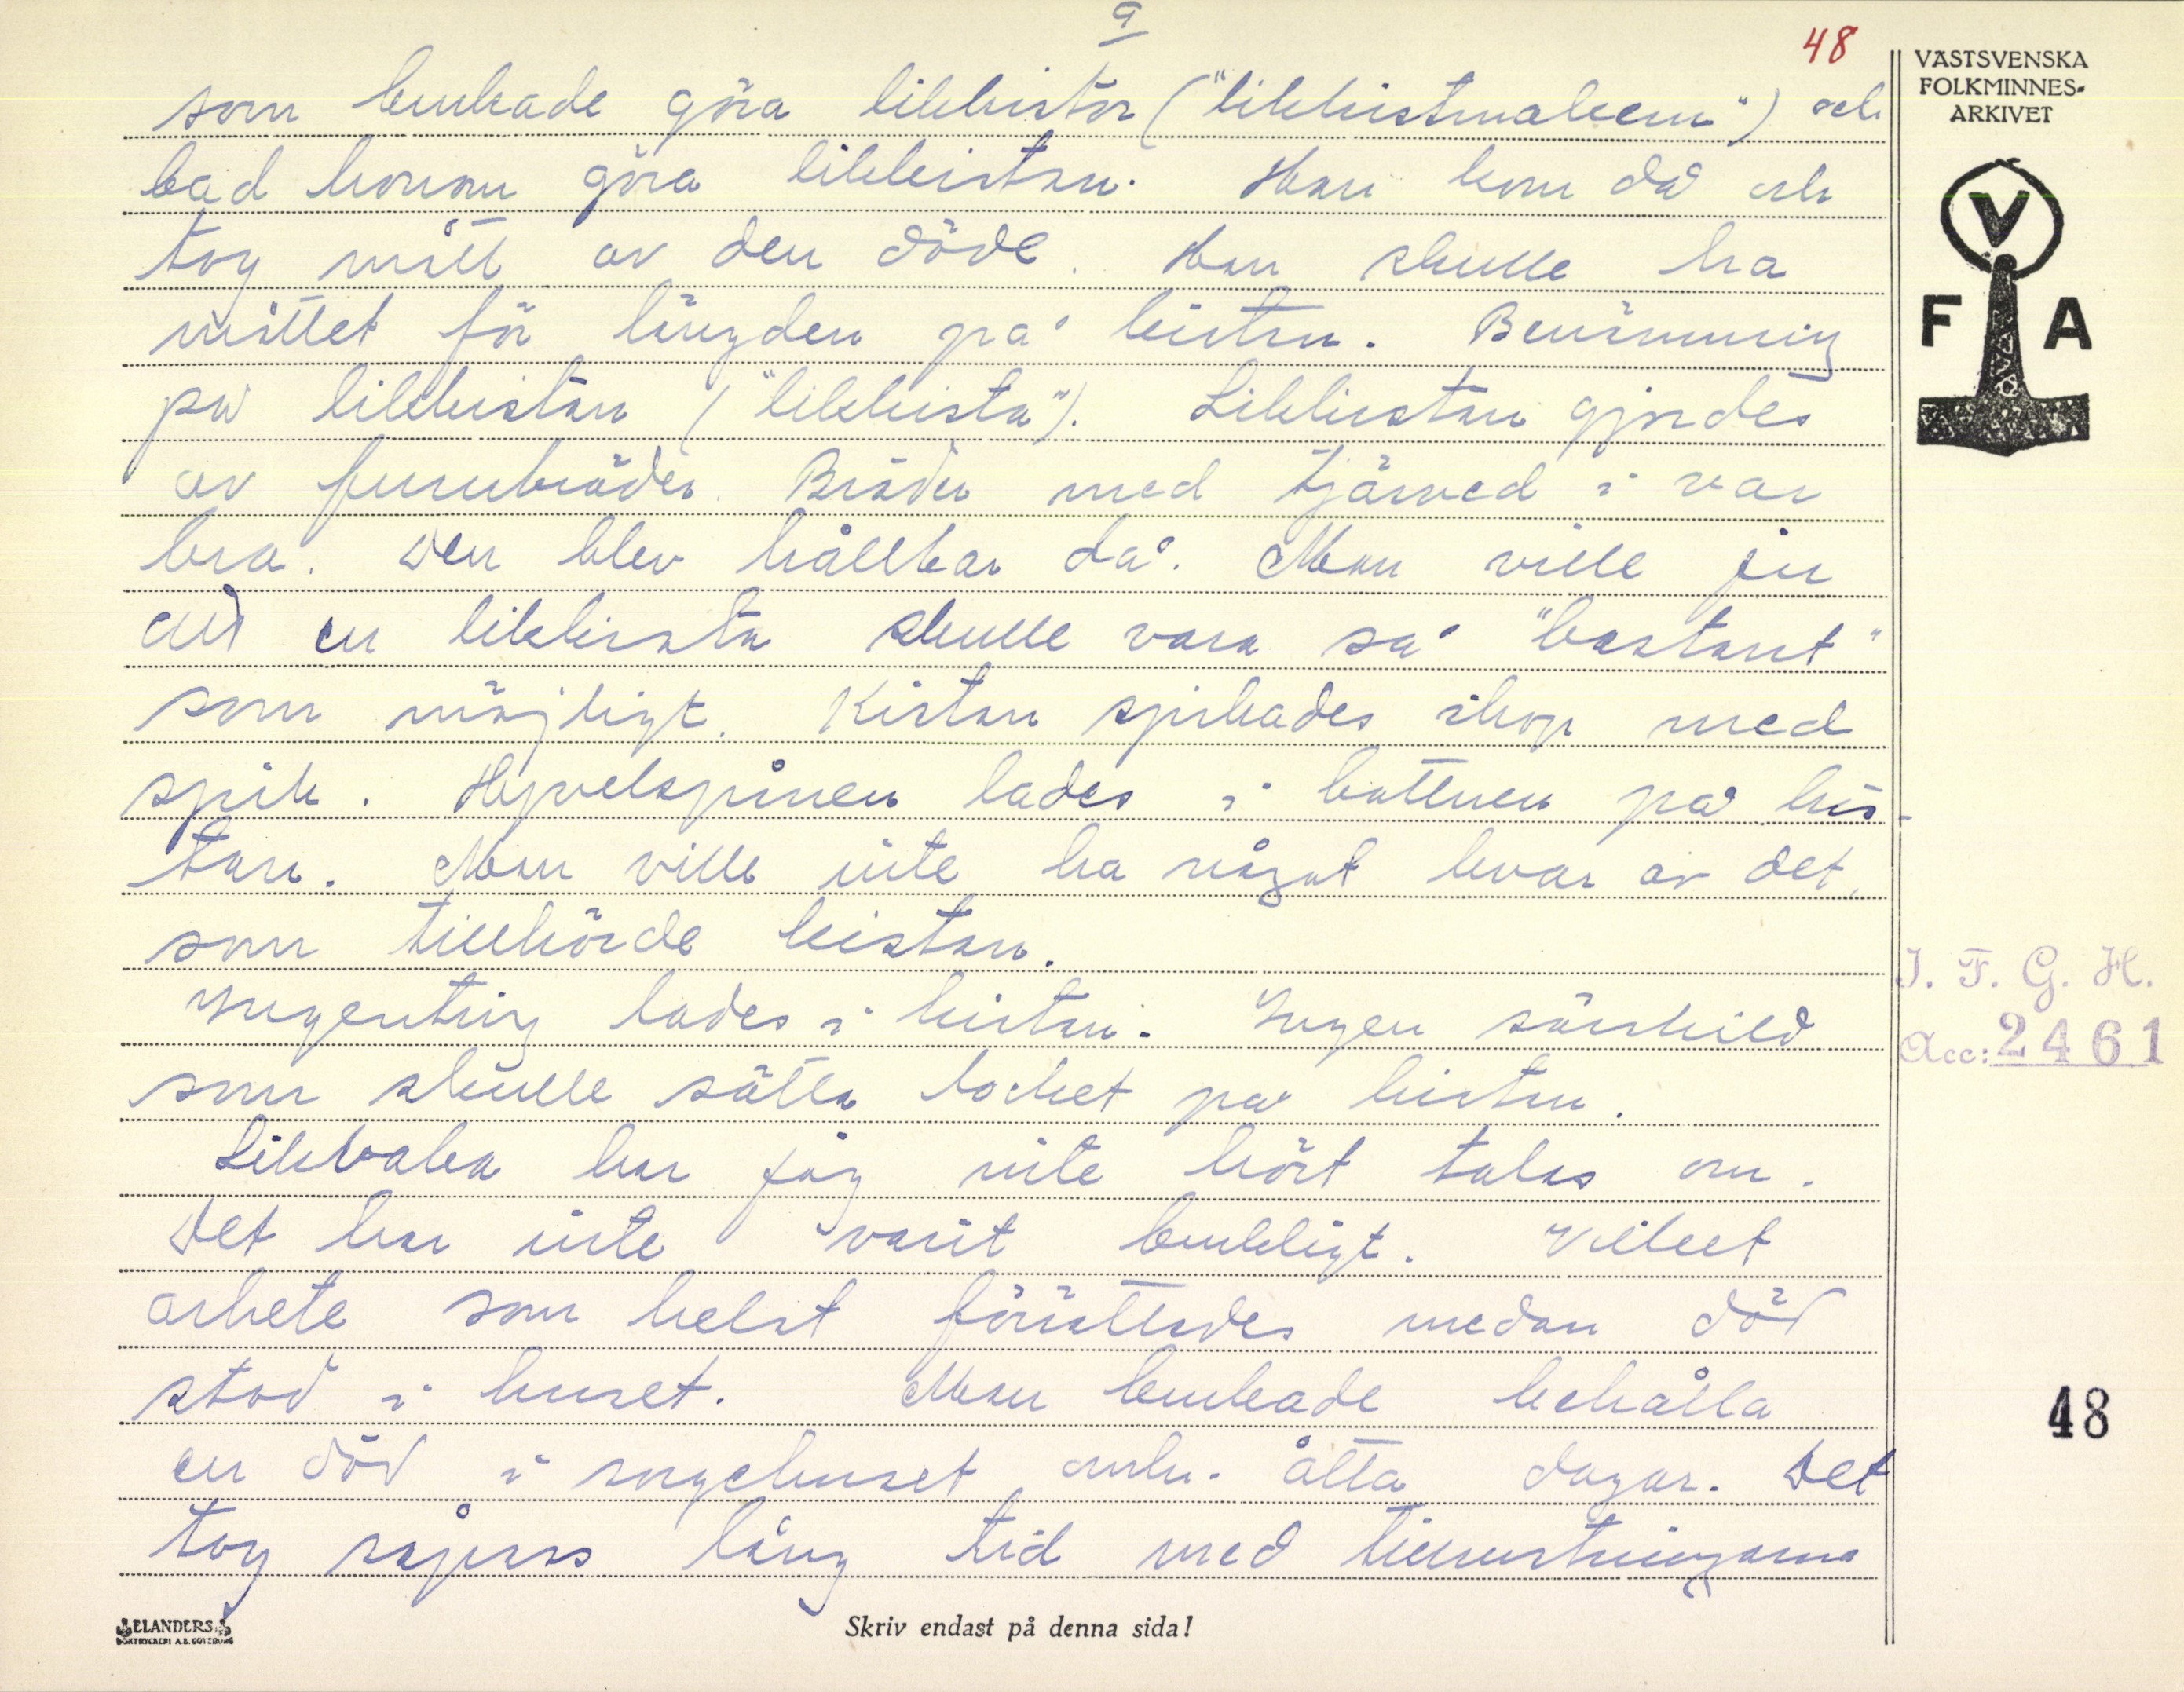 9
48
VÄSTSVENSKA
FOLKMINNES-
ARKIVET
V
F A
som brukade göra likkistor ("likkistmakern") och
bad honom göra likkistan. Han kom då och
tog mått av den döde. Han skulle ha
måttet för längden på kistan. Benämning
på likkistan ("likkista"). Likkistan gjordes
av furubräder. Bräder med tjärved i var
bra. Den blev hållbar då. Man ville ju
att en likkista skulle vara så "bastant"
som möjligt. Kistan spikades ihop med
spik. Hyvelspånen lades i bottnen på kis-
tan. Man ville inte ha något kvar av det,
som tillhörde kistan.
Ingenting lades i kistan. Ingen särskild
som skulle sätta locket på kistan.
Likvaka har jag inte hört talas om.
Det har inte varit brukligt. Vilket
arbete som helst förrättades medan död
stod i huset. Man brukade behålla
en död i sorgehuset omkr. åtta dagar. Det
tog såpass lång tid med tillrustningarna
I. F. G. H.
Acc: 2461
48
ELANDERS
BOKTRYCKERI A.B. GÖTEBORG
Skriv endast på denna sida!